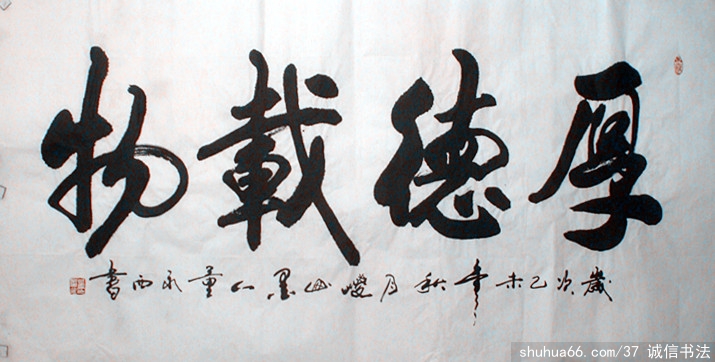 厚德載物
歲次乙未年秋月山墨人董永西書
shuhua66.com/37 诚信书法